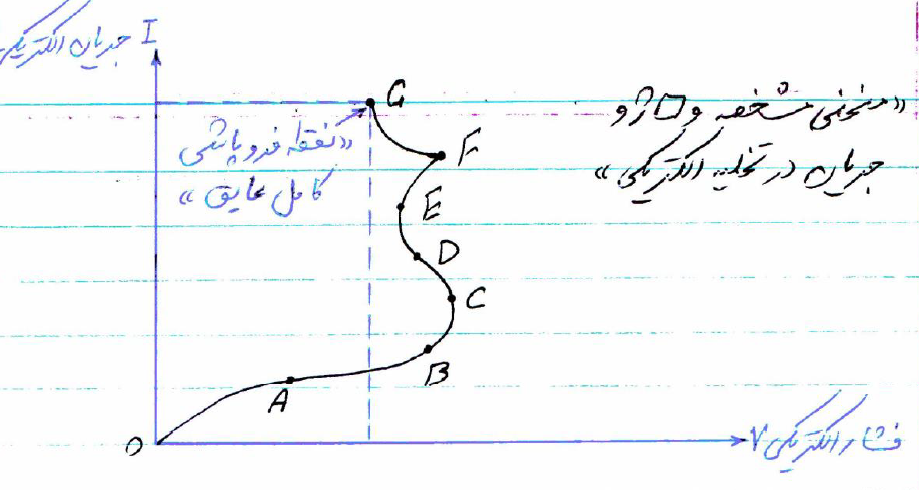 جریان الکتریکی I
G
«منحنی مشخصه ولتاژ و
جریان در تخلیه الکتریکی»
«نقطه فروپاشی
کامل عایق»
F
E
D
C
B
A
O
فشار الکتریکی V